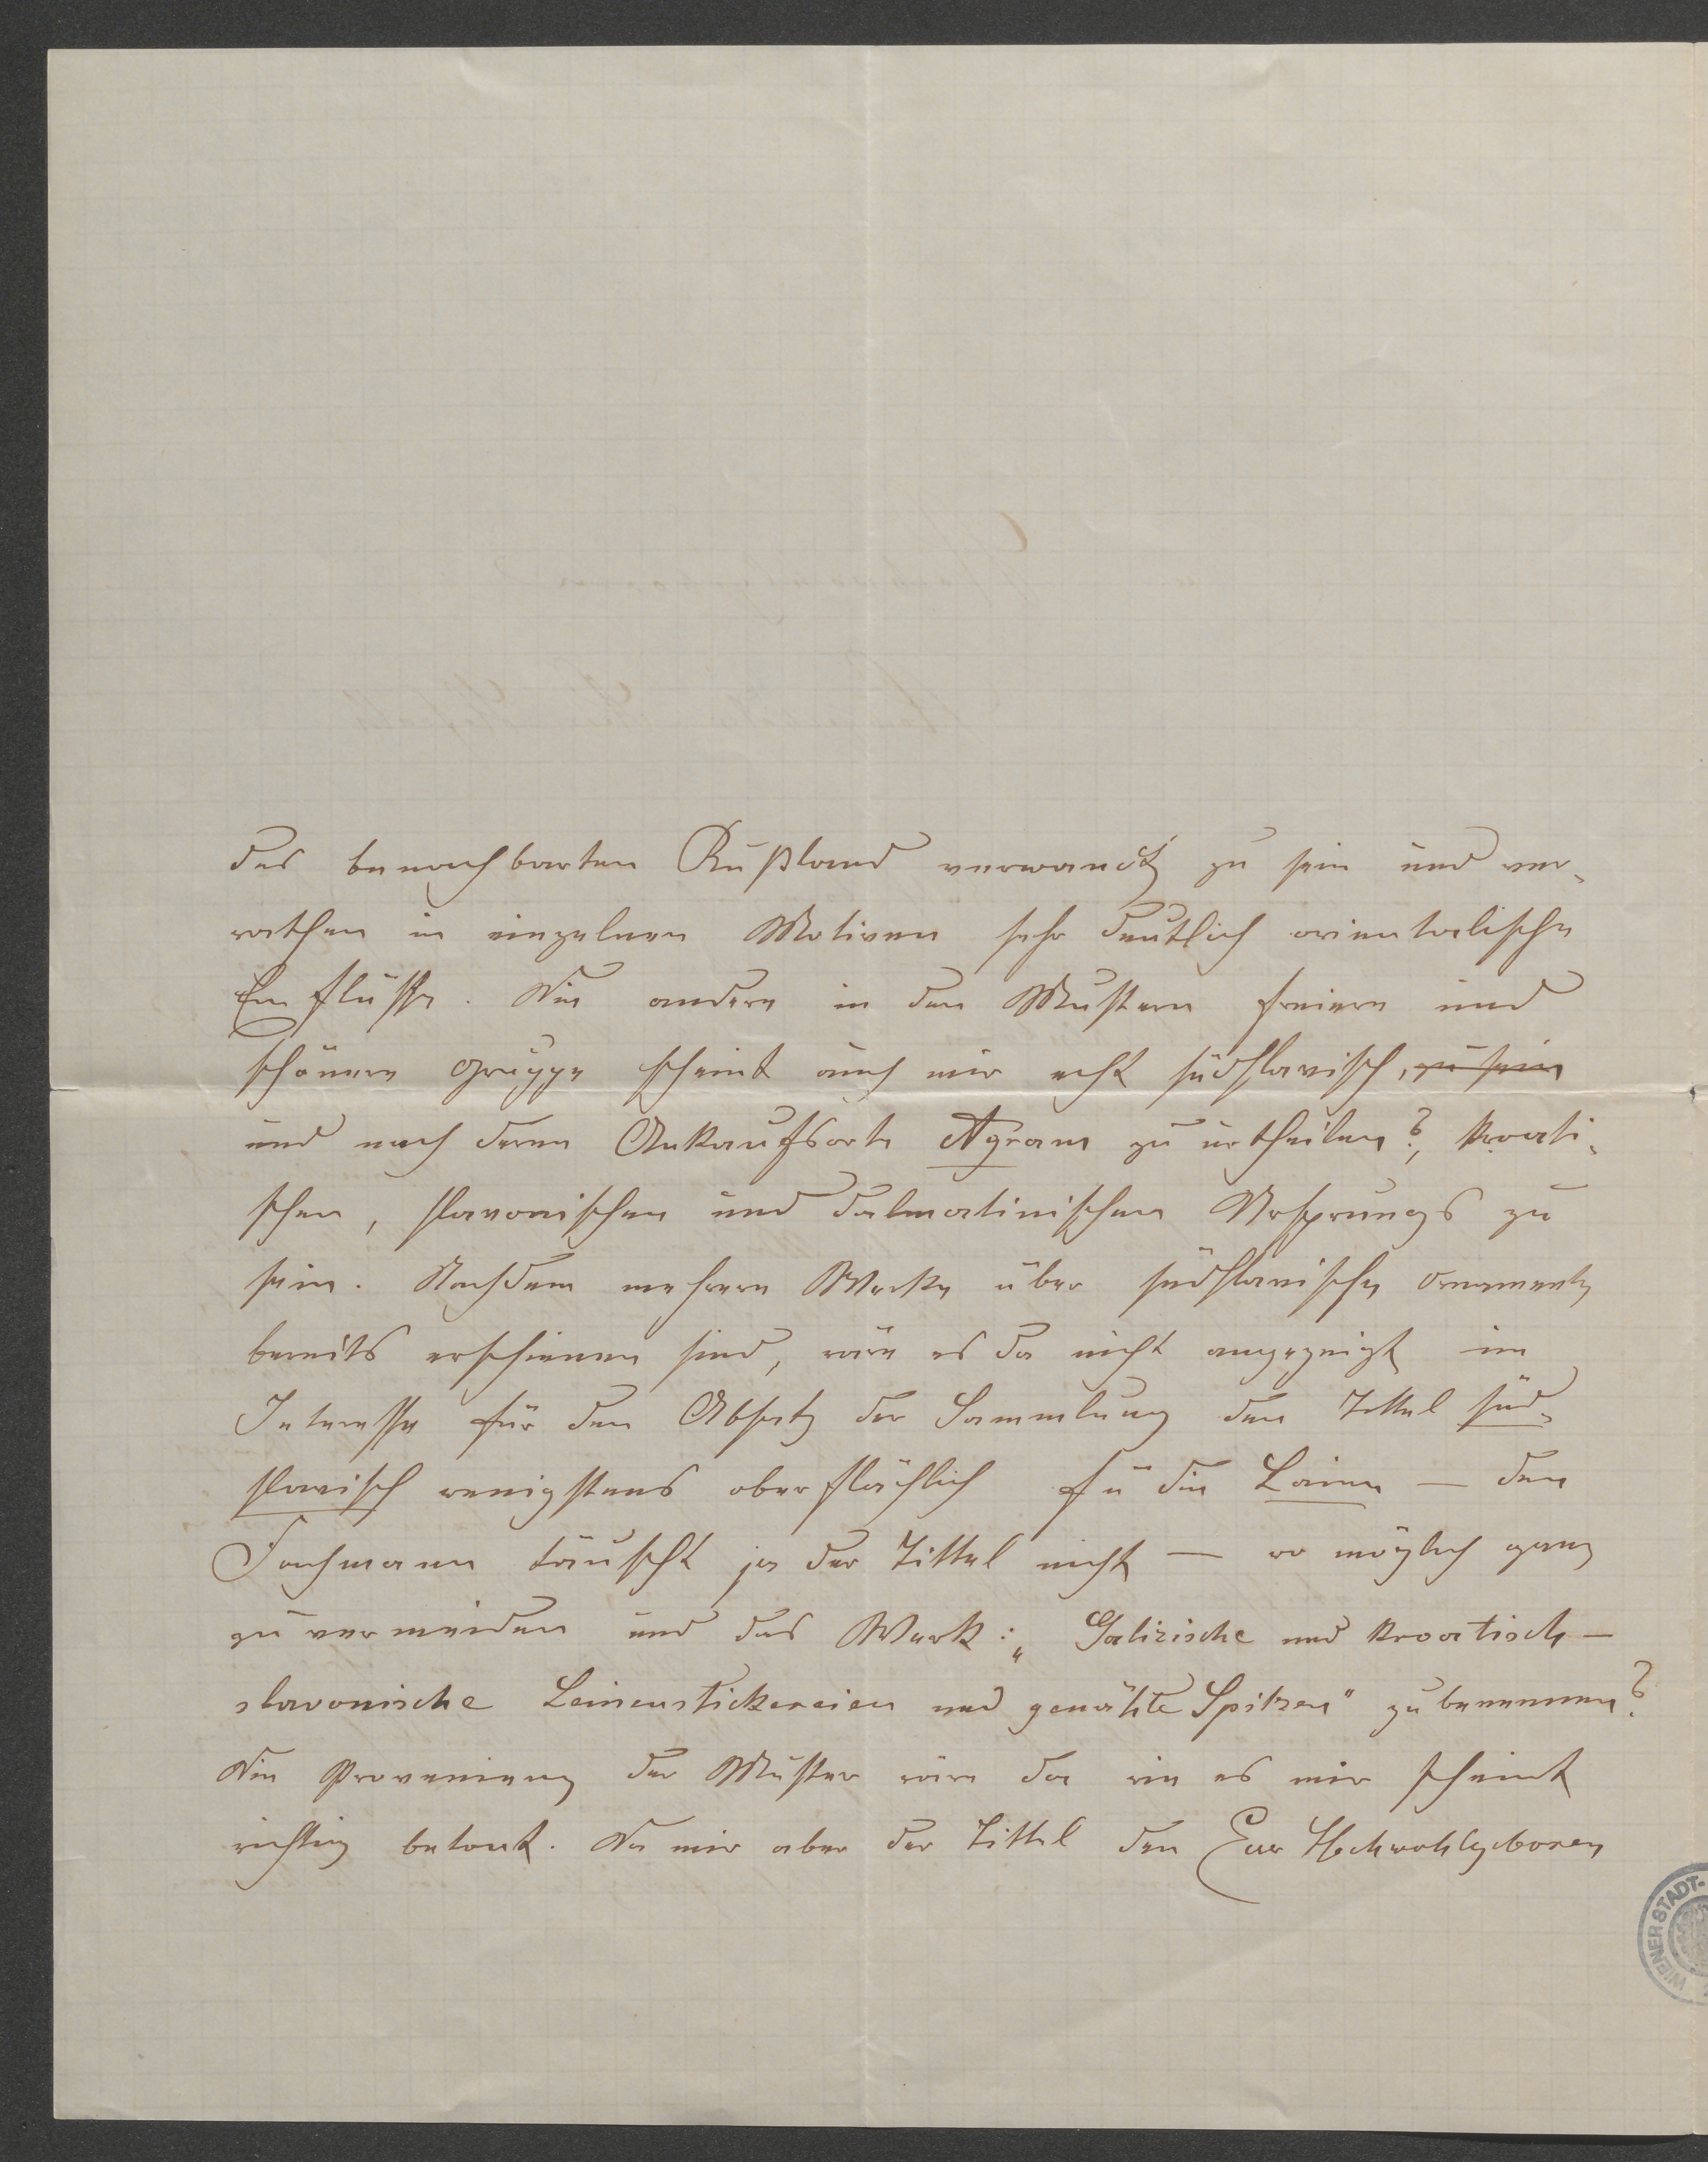 des benachbarten Rußland verwandt zu sein und ver-
rathen in einzelnen Motiven sehr deutlich orientalische
Einflüsse. Die andere in den Mustern freiere und
schönere Gruppe scheint auch mir echt südslavisch, zu sein
und nach deren Ankaufsorte Agram zu urtheilen?, kroati-
schen, slavonischen und dalmatinischen Ursprungs zu
sein. Nachdem mehrere Werke über südslavische Ornamente
bereits erschienen sind, wäre es da nicht angezeigt im
Interesse für den Absatz der Sammlung den Tittel süd-
slavisch wenigstens oberflächlich fü die Laien — den
Fachmann täuscht ja der Tittel nicht — wo möglich ganz
zu vermeiden und das Werk: „Galizische und kroatisch-
slavonische Leinenstickereien und genähte Spitzen" zu benennen?
Die Provenienz der Muster wäre da wie es mir scheint
richtig betont. Da mir aber der Tittel den Euer Hochwohlgeboren
WIENER STADT-